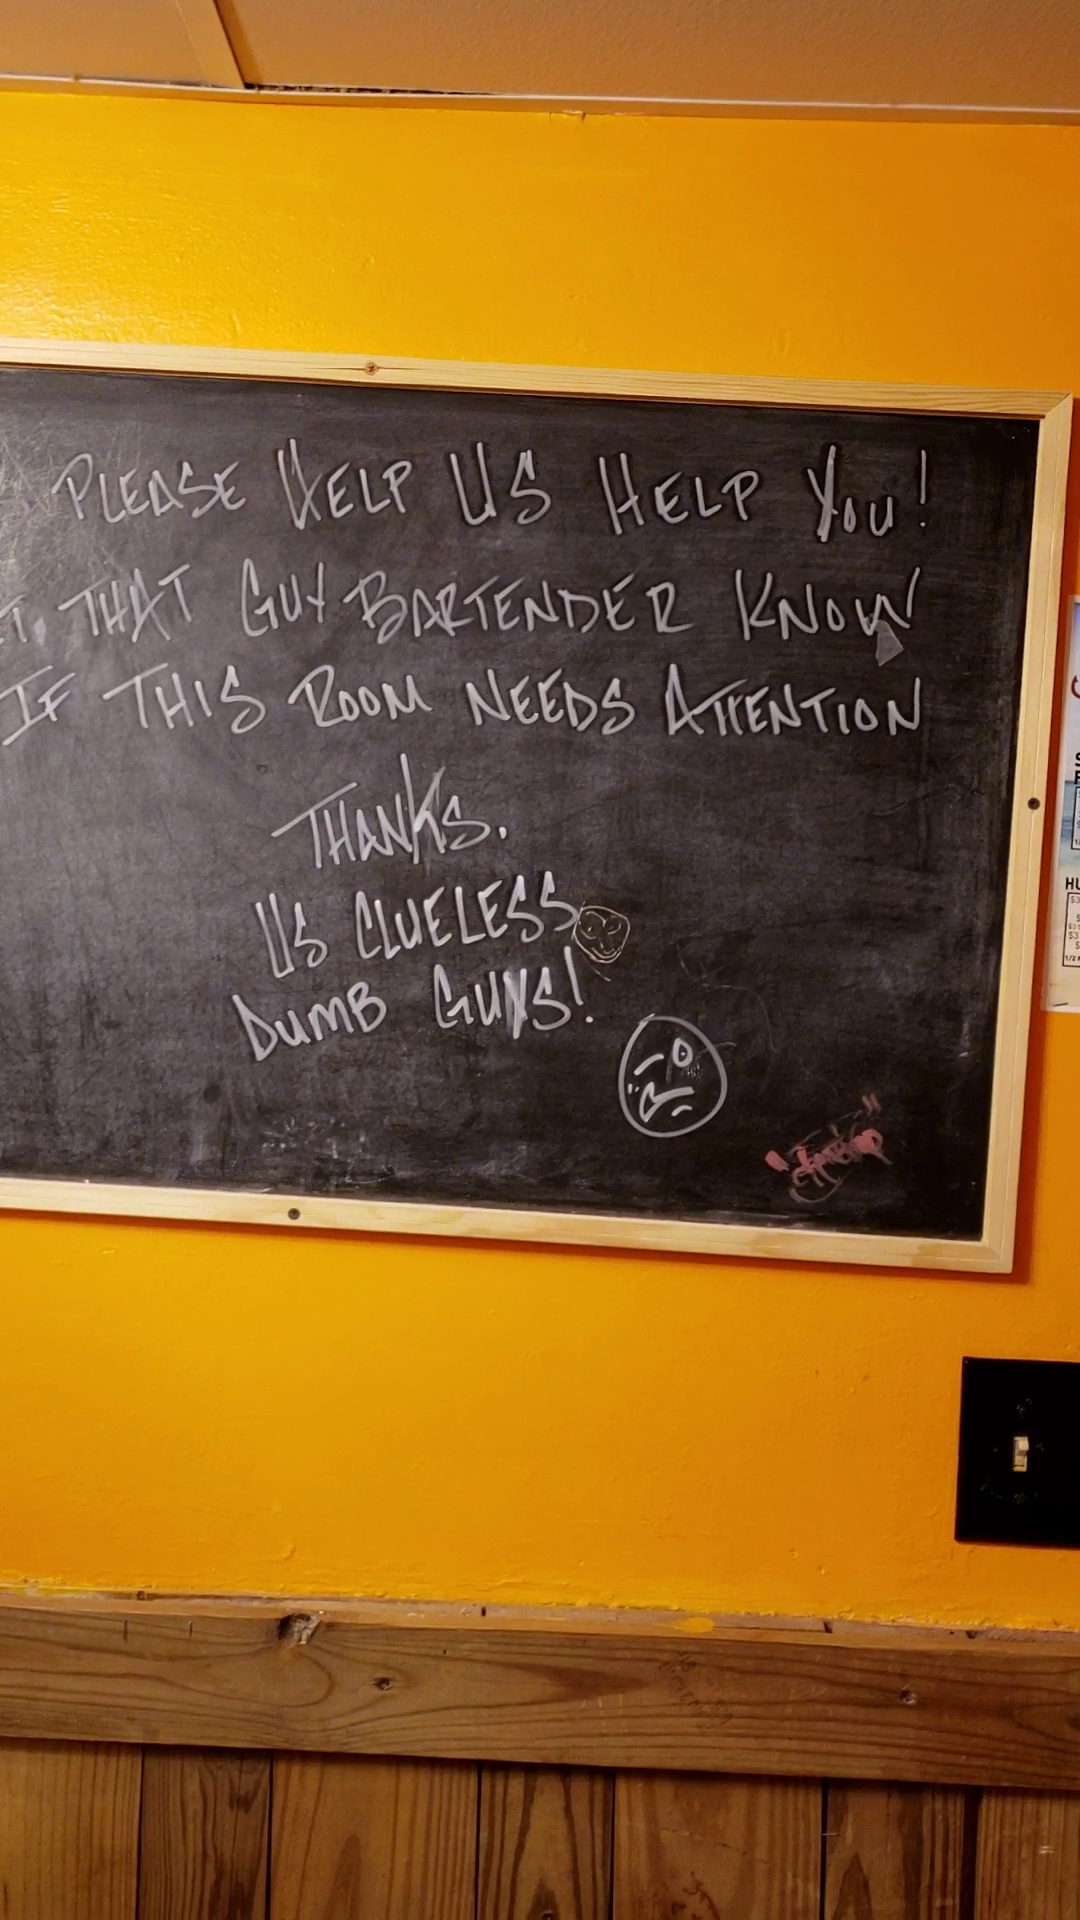 PLEASE HELP US HELP YOU!
THAT GUY BARTENDER KNOW
IF THIS ROOM NEEDS ATTENTION
THANKS.
US CLUELESS
DUMB GUYS!
HU